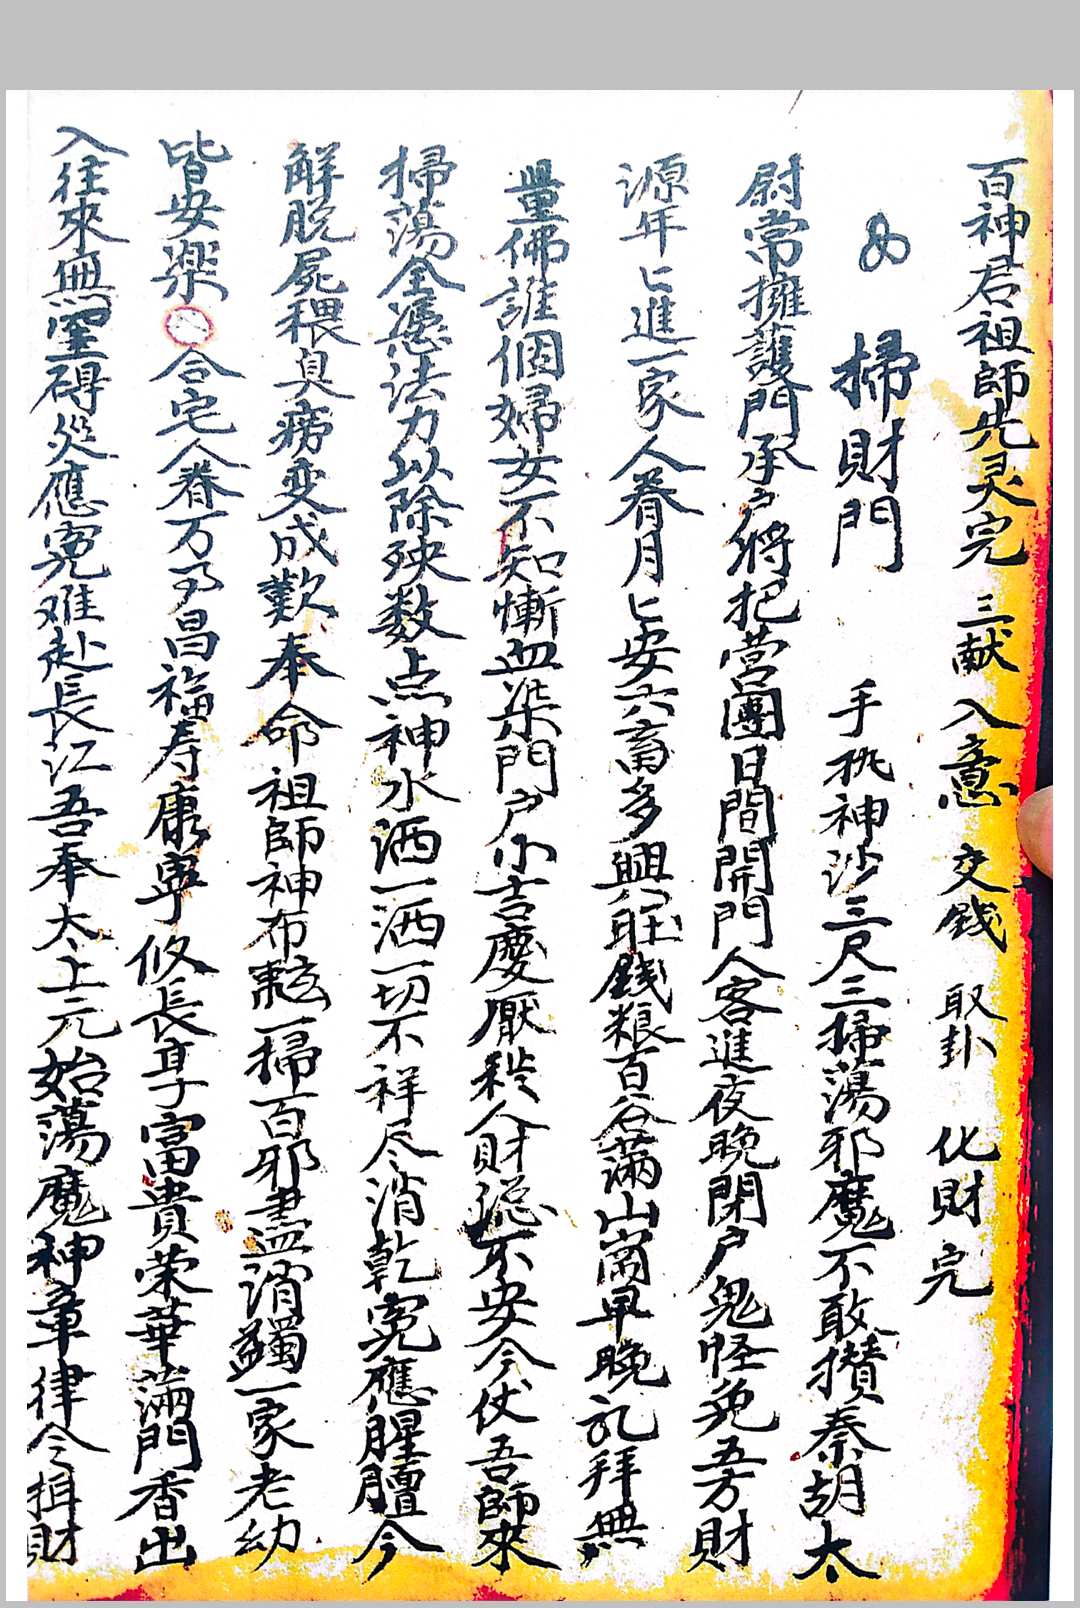 百神君祖師先灵完 三献 入意 交錢 取卦 化財 完
掃財門 手执神沙三尺三掃蕩邪魔不敢攢秦胡太
尉常擁護門承户將把营團日間開門人客進夜晚閉户鬼怪免五方財
源年匕進一家人眷月匕安六畜多興旺錢粮百谷滿山崗早晚礼拜無
量佛誰個婦女不知慚血染門户小吉慶厭穢人財總不安今仗吾師來
掃蕩全憑法力以除殃数点神水洒一洒一切不祥尽消乾冤應腥膻今
解脱屍穢臭痨变成歡奉命祖師神布転一掃百邪盡消蠲一家老幼
皆安樂 合宅人眷万乃昌福寿康寧修長享富貴荣華滿門香出
入往來無罣碍災應冤难赴長江吾奉太上元始蕩魔神章律令揖財